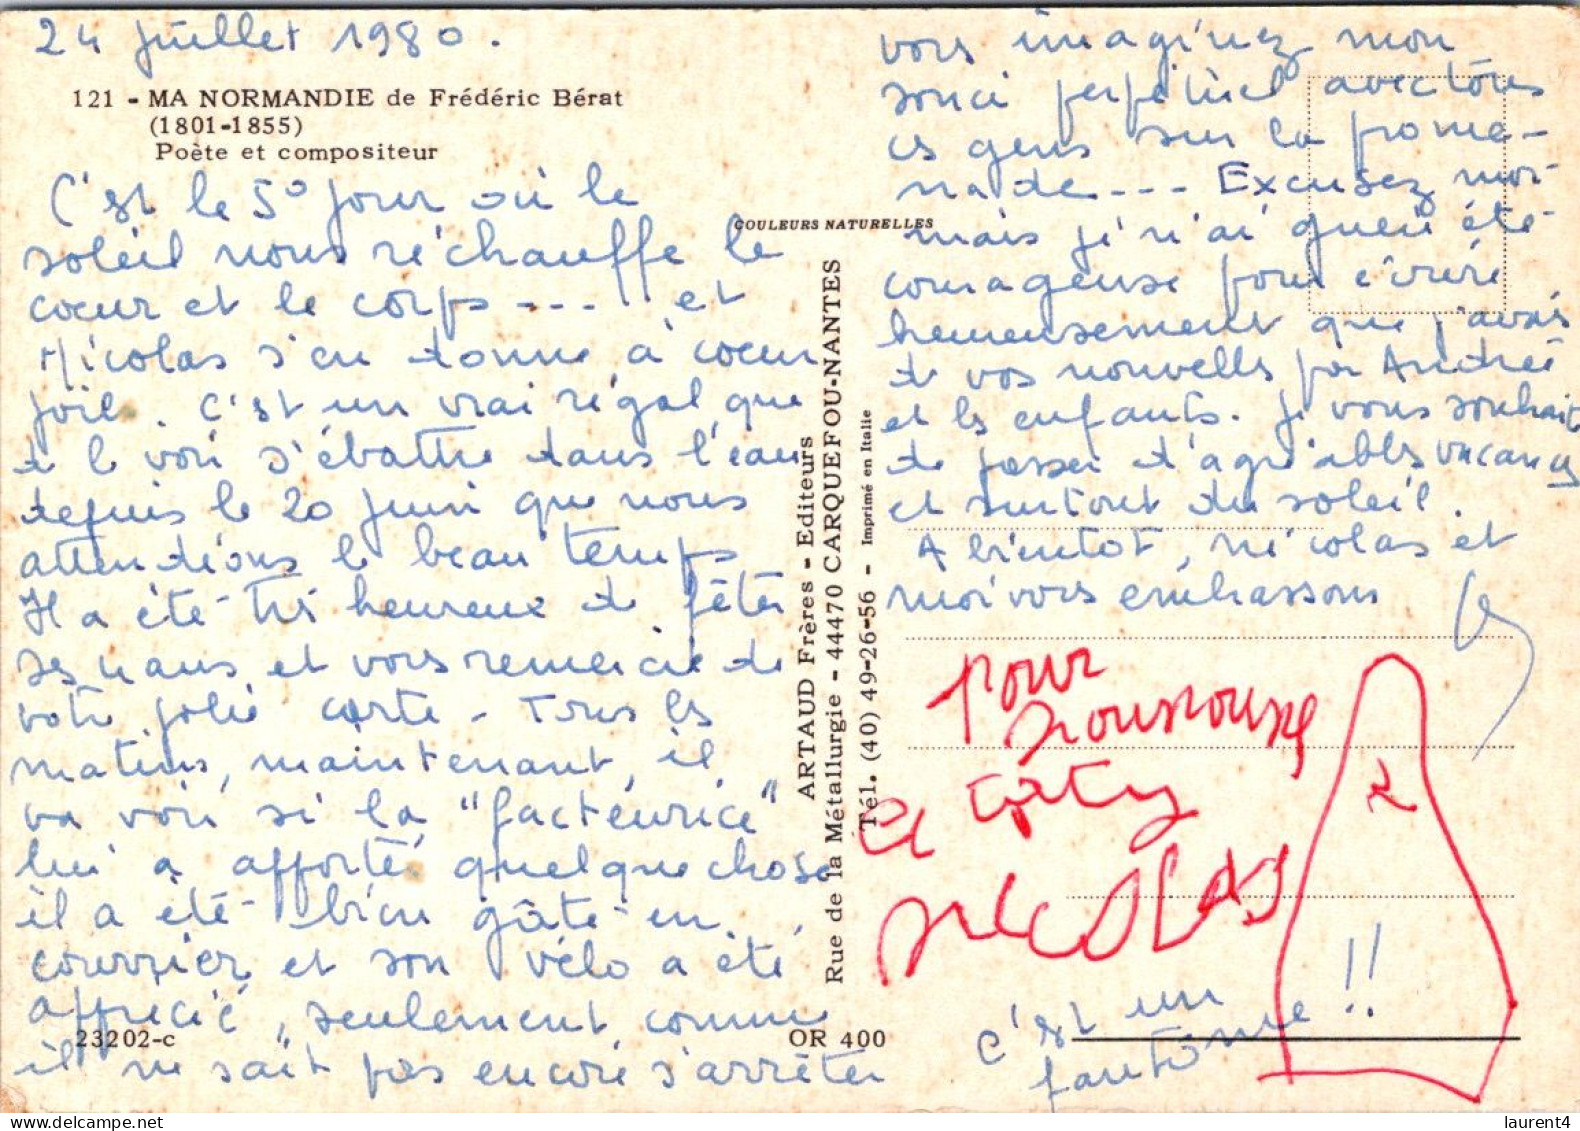 24 juillet 1980.
121 - MA NORMANDIE de Frédéric Bérat
(1801-1855)
Poète et compositeur
C'est le 5° jour où le
soleil nous réchauffe le
coeur et le corps --- et
Nicolas s'en donne à coeur
joie. C'est un vrai régal que
de le voir s'ébattre dans l'eau
depuis le 20 juin que nous
attendions le beau temps
Il a été très heureux de fêter
ses 4 ans et vous remercie de
votre jolie carte - Tous les
matins, maintenant, il
va voir si la "facteurice"
lui a apporté quelque chose
il a été bien gâté en
courrier et son vélo a été
apprécié, seulement comme
il ne sait pas encore s'arrêter
23202-c
OR 400
COULEURS NATURELLES
ARTAUD Frères - Editeurs
Rue de la Métallurgie - 44470 CARQUEFOU-NANTES
Tél. (40) 49-26-56 - Imprimé en Italie
vous imaginez mon
souci perpétuel avec tous
ces gens sur la prome-
nade --- Excusez moi
mais je n'ai guère été
courageuse pour écrire
heureusement que j'avais
de vos nouvelles par Andrée
et les enfants. Je vous souhaite
de passer d'agréables vacances
et surtout du soleil.
A bientôt, Nicolas et
moi vous embrassons
pour
nounoursе
et
NICOLAS
c'est un
fantôme !!